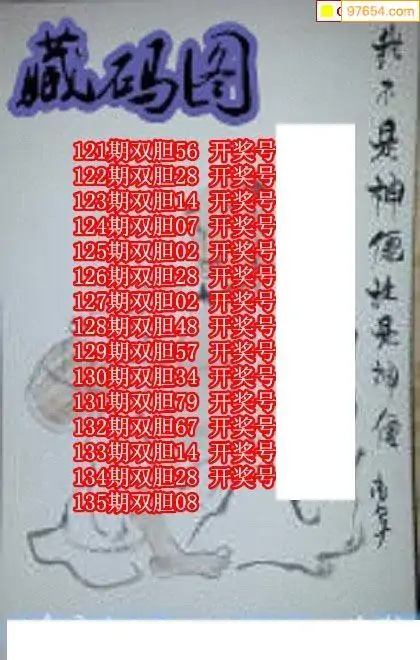 97654.com
藏码图
121期双胆56 开奖号
122期双胆28 开奖号
123期双胆14 开奖号
124期双胆07 开奖号
125期双胆02 开奖号
126期双胆28 开奖号
127期双胆02 开奖号
128期双胆48 开奖号
129期双胆57 开奖号
130期双胆34 开奖号
131期双胆79 开奖号
132期双胆67 开奖号
133期双胆14 开奖号
134期双胆28 开奖号
135期双胆08
不是神仙
是神仙